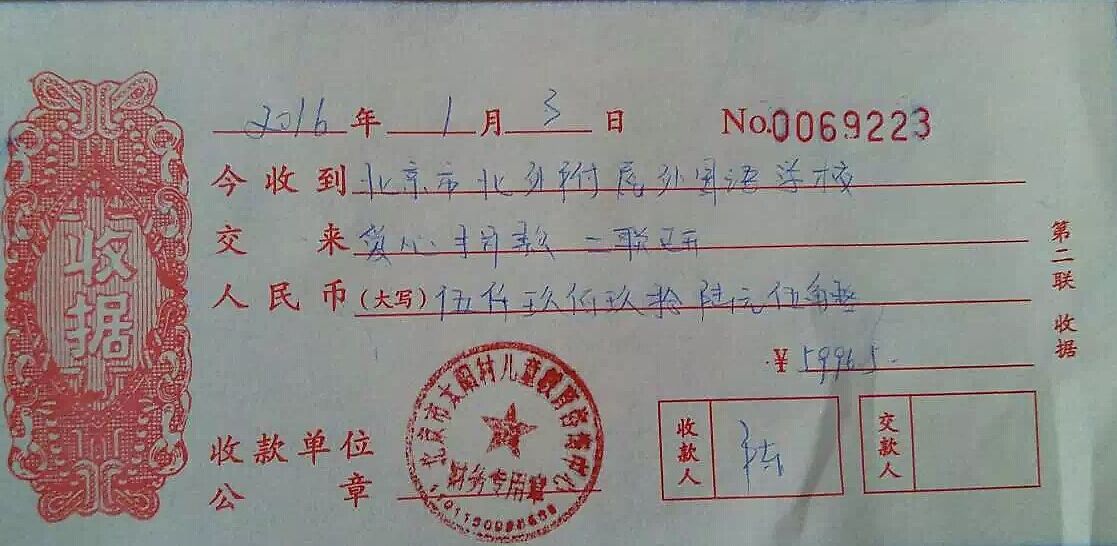 2016年1月3日 No.0069223
今收到北京市北外附属外国语学校
交来爱心捐款
人民币(大写)伍仟玖佰玖拾陆元伍角整
¥5996.5
收据
第二联 收据
收款单位
公章
北京市太阳村儿童教育咨询中心
财务专用章
收款人 陆
交款人